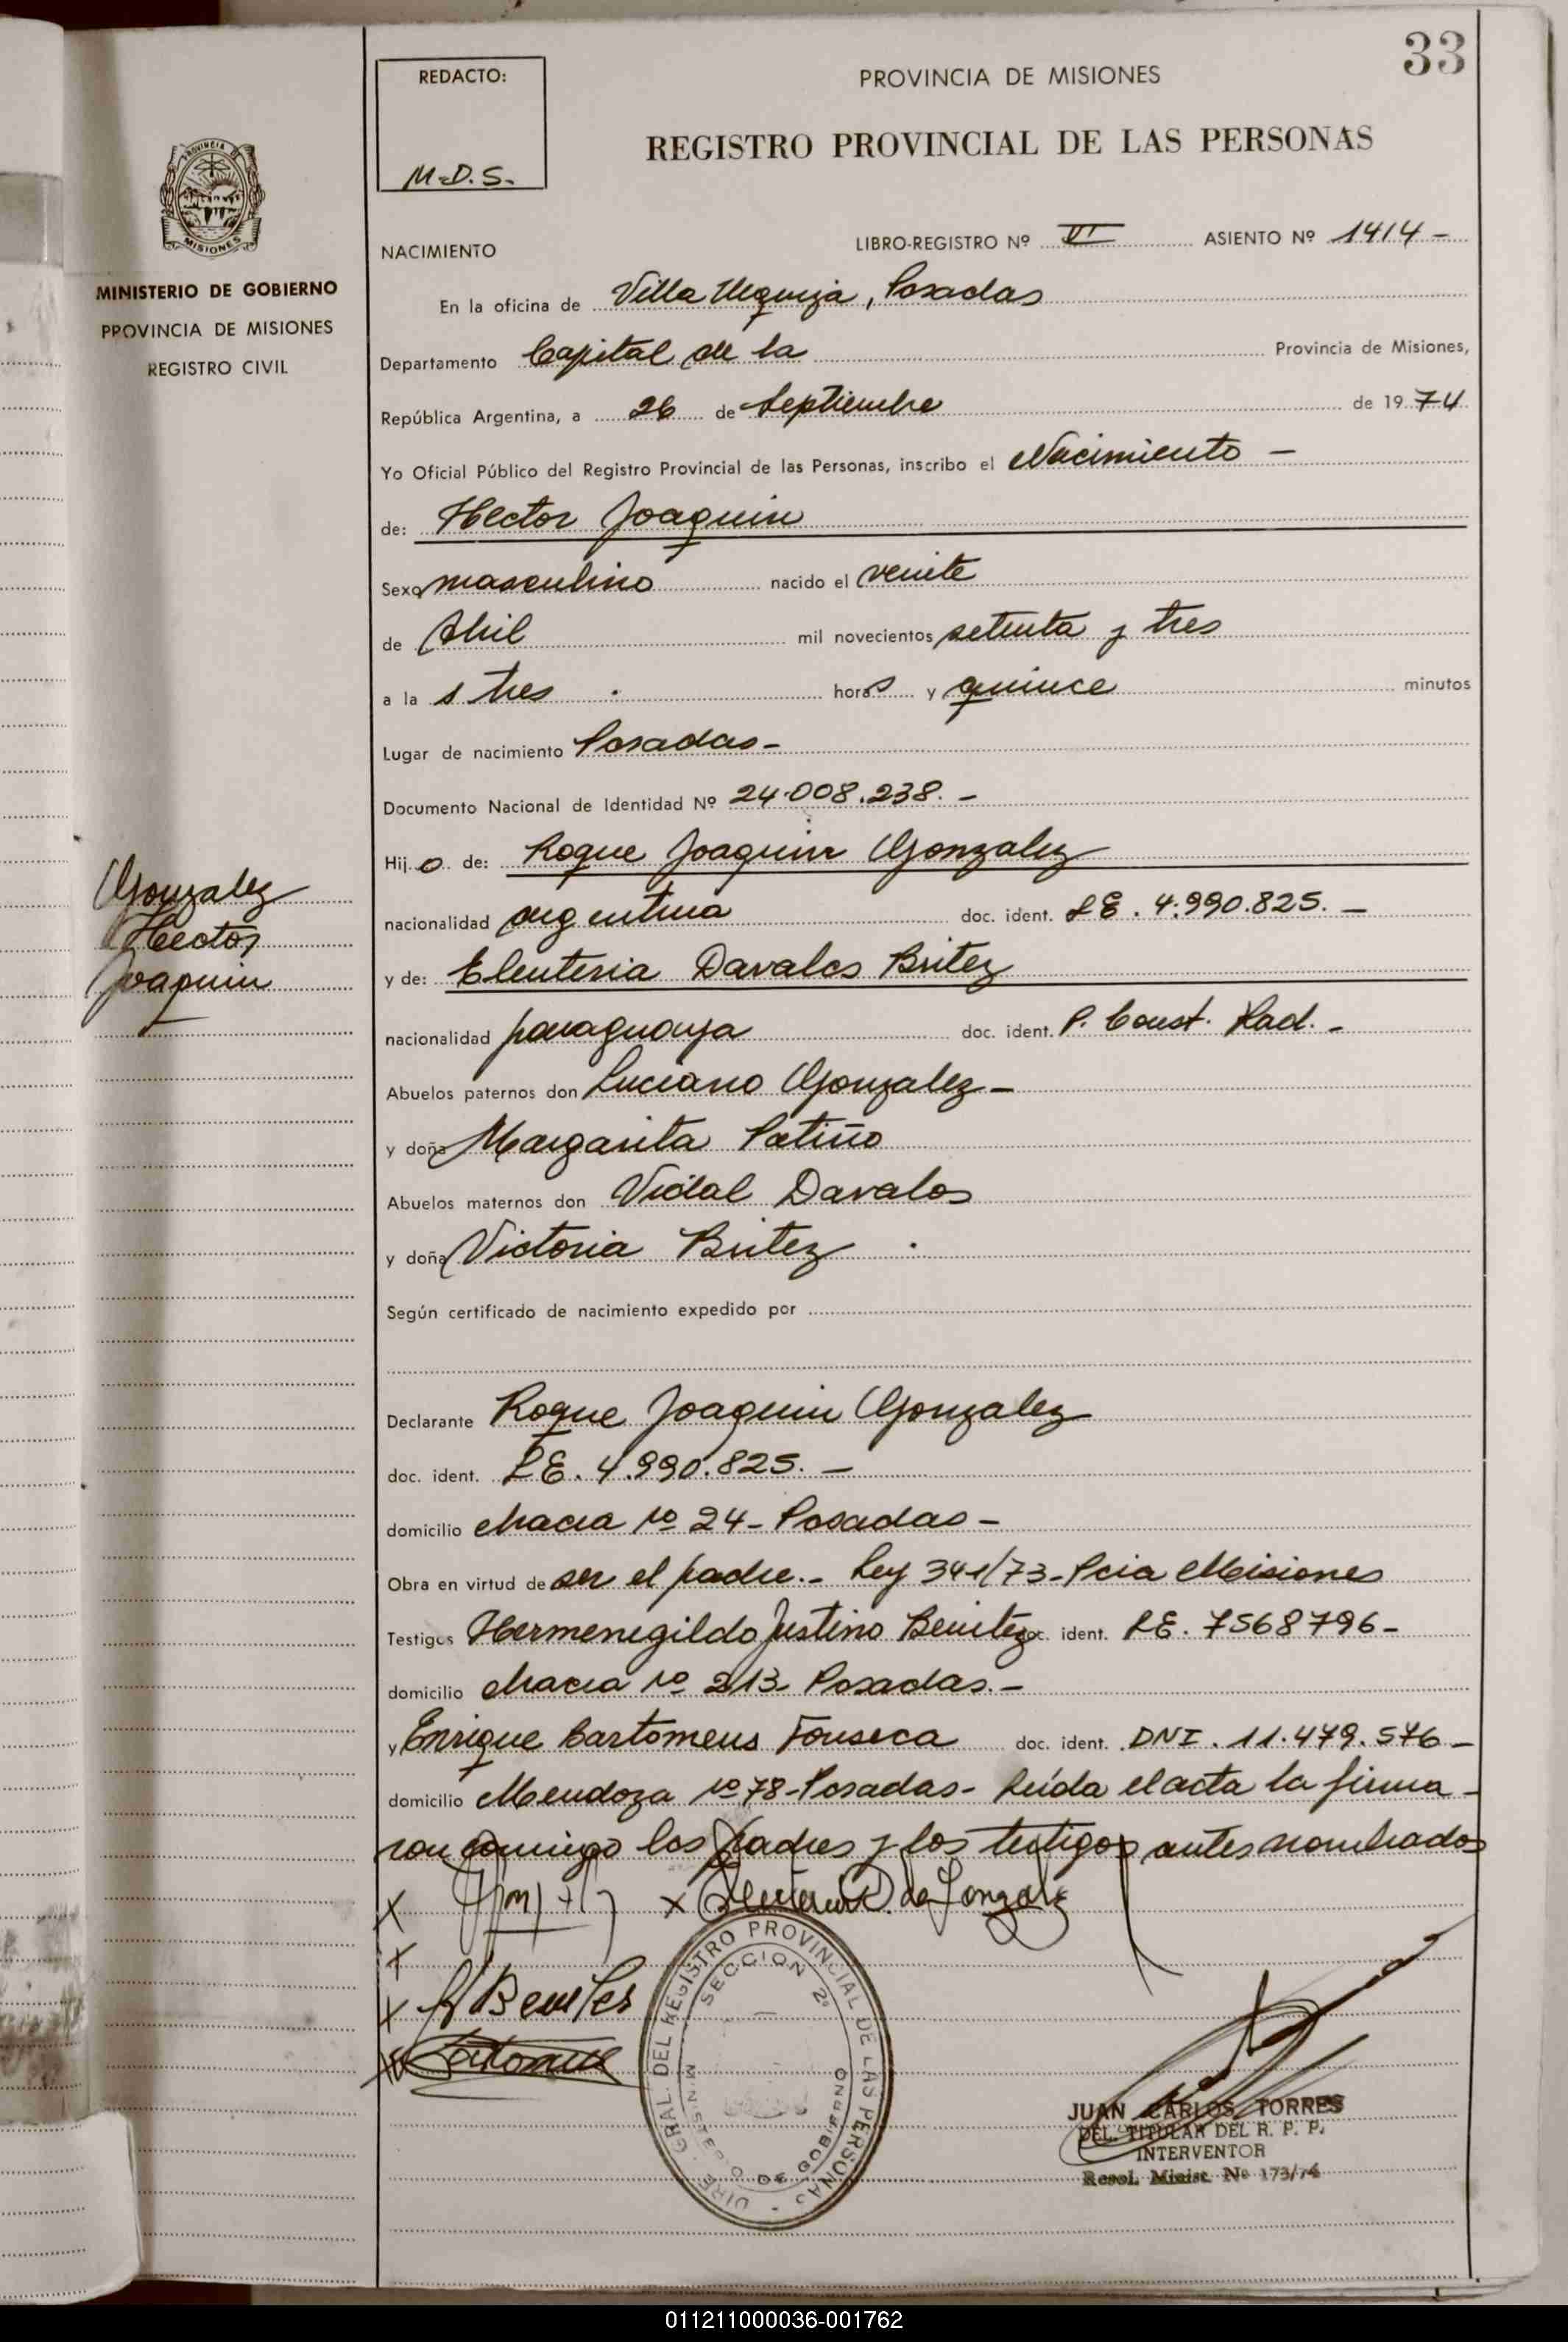 33
REDACTO:
M.D.S.
PROVINCIA DE MISIONES
REGISTRO PROVINCIAL DE LAS PERSONAS
PROVINCIA DE
MISIONES
MINISTERIO DE GOBIERNO
PROVINCIA DE MISIONES
REGISTRO CIVIL
NACIMIENTO
LIBRO-REGISTRO Nº VI ASIENTO Nº 1414-
En la oficina de Villa Urquiza, Posadas
Departamento Capital de la Provincia de Misiones,
República Argentina, a 26 de Septiembre de 1974
Yo Oficial Público del Registro Provincial de las Personas, inscribo el Nacimiento -
de: Hector Joaquin
Sexo masculino nacido el veinte
de Abril mil novecientos setenta y tres
a la s tres horas y quince minutos
Lugar de nacimiento Posadas-
Documento Nacional de Identidad Nº 24.008.238.-
Hijo de: Roque Joaquin Gonzalez
nacionalidad argentina doc. ident. LE. 4.990.825.-
y de: Eleuteria Davalos Britez
nacionalidad paraguaya doc. ident. P. Const. Rad.-
Abuelos paternos don Luciano Gonzalez-
y doña Margarita Patiño
Abuelos maternos don Vidal Davalos
y doña Victoria Britez
Según certificado de nacimiento expedido por
Gonzalez
Hector
Joaquin
Declarante Roque Joaquin Gonzalez
doc. ident. LE. 4.990.825.-
domicilio chacra nº 24- Posadas-
Obra en virtud de ser el padre.- Ley 341/73-Pcia Misiones
Testigos Hermenegildo Justino Benitez doc. ident. LE. 7568796-
domicilio chacra nº 213- Posadas.-
y Enrique Bartomeus Fonseca doc. ident. DNI. 11.479.576-
domicilio Mendoza nº 78-Posadas- Leída el acta la firma-
ron conmigo los padres y los testigos antes nombrados
x x Eleuteria D. de Gonzalez
x
x Benites
x
DIRE. GRAL. DEL REGISTRO PROVINCIAL DE LAS PERSONAS
SECCION 2ª
MINISTERIO DE GOBIERNO
JUAN CARLOS TORRES
DEL. TITULAR DEL R. P. P.
INTERVENTOR
Resol. Minist. Nº 173/74
011211000036-001762